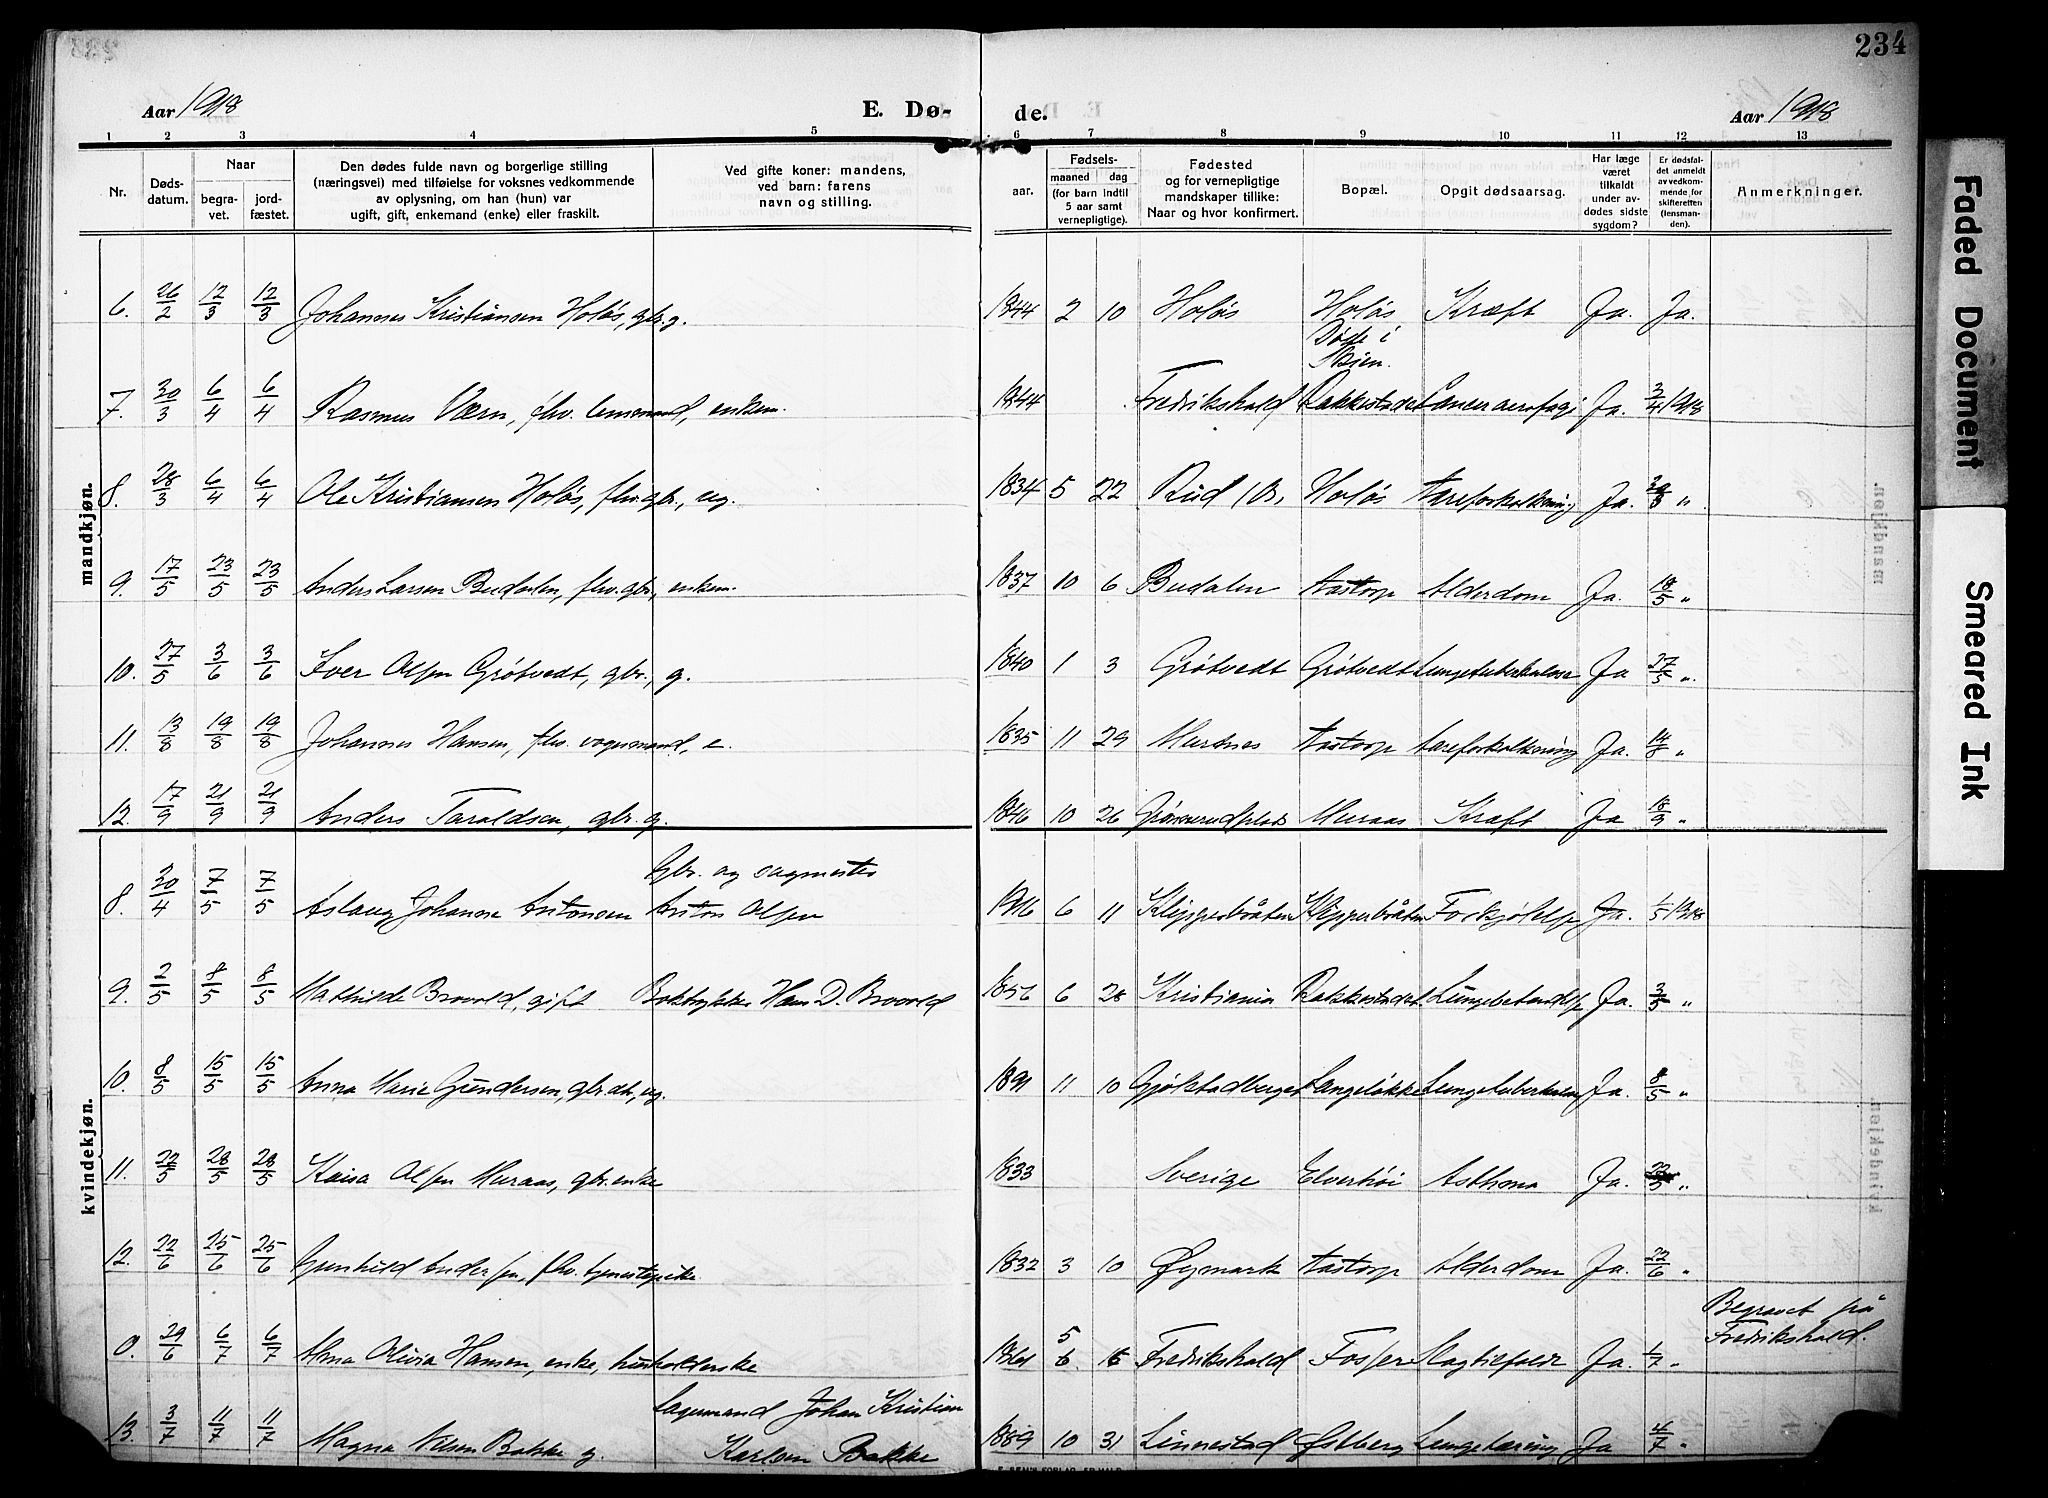 234
Aar 1918
E. Dø-
de.
Aar 1918
1 2 3 4 5 6 7 8 9 10 11 12 13
Nr.
Døds-
datum.
Naar
begra-
vet.
jord-
fæstet.
Den dødes fulde navn og borgerlige stilling
(næringsvei) med tilføielse for voksnes vedkommende
av oplysning, om han (hun) var
ugift, gift, enkemand (enke) eller fraskilt.
Ved gifte koner: mandens,
ved barn: farens
navn og stilling.
aar.
Fødsels-
maaned dag
(for barn indtil
5 aar samt
vernepligtige).
Fødested
og for vernepligtige
mandskaper tillike:
Naar og hvor konfirmert.
Bopæl.
Opgit dødsaarsag.
Har læge
været
tilkaldt
under av-
dødes sidste
sygdom?
Er dødsfal-
det anmeldt
av vedkom-
mende for
skifteretten
(lensman-
den).
Anmerkninger.
mandkjøn.
6. 26/2 12/3 12/3 Johannes Kristiansen Holøs, gbr. g. 1844 2 10 Holøs Holøs Kræft Ja. Ja.
Døde i
Skien.
7. 30/3 6/4 6/4 Rasmus Værn, fhv. lensmand, enkem. 1844 Fredrikshald Rakkestadet Cancer Ja. 3/4 1918
8. 28/3 6/4 6/4 Ole Kristiansen Holøs, fhv. gbr., ug. 1834 5 22 Rud Holøs Aareforkalkning Ja. "
9. 17/5 23/5 23/5 Anders Larsen Budalen, fhv. gbr., enkem. 1837 10 6 Budalen Aastorp Alderdom Ja. 18/5 "
10. 27/5 3/6 3/6 Iver Olsen Grötvedt, gbr., g. 1840 1 3 Grötvedt Grötvedt Lungetuberkulose Ja 27/5 "
11. 13/8 19/8 19/8 Johannes Hansen, fhv. vognmand, e. 1835 11 29 Aastorp Aareforkalkning Ja. 14/8 "
12. 17/9 21/9 21/9 Anders Taraldsen, gbr. g. 1846 10 26 Muraas Kræft Ja 18/9 "
kvindekjøn.
Gbr. og sagmester
8. 30/4 7/5 7/5 Aslaug Johanne Antonsen Anton Olsen 1916 6 11 Klypperbråten Klypperbråten Ja. 1/5 1918
9. 2/5 8/5 8/5 Mathilde Brovold, gift Boktrykker Hans D. Brovold 6 28 Kristiania Rakkestadet Ja. 3/5 "
10. 8/5 15/5 15/5 Anna Marie Gundersen, gbr. dt., ug. 1891 11 10 Gjølstadberget Langeløkke Lungetuberkulose Ja. 8/5 "
11. 22/5 28/5 28/5 Kaisa Olsen Muraas, gbr. enke 1833 Sverige Elverhöi Asthma Ja. "
12. 22/6 25/6 25/6 Gunhild Andersen, fhv. tjenestepike 1832 3 10 Øymark Aastorp Alderdom Ja. 22/6 "
Begravet på
Fredrikshald.
0. 29/6 6/7 6/7 Alma Olivia Hansen, enke, husholderske 1861 Fredrikshald Fosser Slagtilfælde Ja. 1/7 "
Lagermand Johan Kristian
13. 3/7 11/7 11/7 Magna Nilsen Bakke g. Karlsen Bakke 1889 10 31 Linnestad Østberg Ja 4/7 "
Faded Document
Smeared Ink